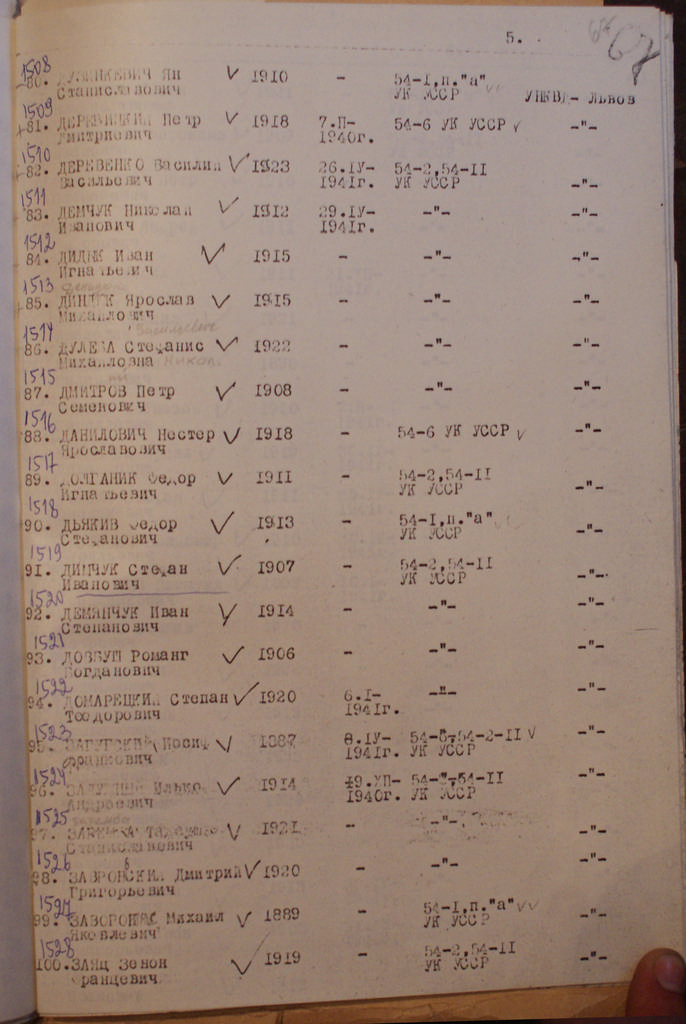 5.
67
1508
80. Ян 1910 - 54-I,п."а"
Станиславович УК УССР УНКВД- Львов
1509
81. ДЕРЕВИЦКИЙ Петр 1918 7.П- 54-6 УК УССР -"-
Дмитриевич 1940г.
1510
82. ДЕРЕВЕНКО Василий 1923 26.IУ- 54-2,54-II
Васильевич 1941г. УК УССР -"-
1511
83. ДЕМЧУК Николай 1912 29.IУ- -"- -"-
Иванович 1941г.
1512
84. ДИДЫК Иван 1915 - -"- -"-
Игнатьевич
1513
85. Ярослав 1915 - -"- -"-
Михайлович
1514 Васильевна
86. ДУЛЕБА Стефанис 1922 - -"- -"-
Михайловна Никол.
1515
87. ДМИТРОВ Петр 1908 - -"- -"-
Семенович
1516
88. ДАНИЛОВИЧ Нестер 1918 - 54-6 УК УССР -"-
Ярославович
1517
89. ДОЛГАНИК Федор 1911 - 54-2,54-II -"-
Игнатьевич УК УССР
1518
90. ДЬЯКИВ Федор 1913 - 54-I,п."а" -"-
Стефанович УК УССР
1519
91. ДИМЧУК Стефан 1907 - 54-2,54-II
Иванович УК УССР -"-
1520
92. ДЕМЯНЧУК Иван 1914 - -"- -"-
Степанович
1521
93. ДОВБУШ Романг 1906 - -"- -"-
Богданович
1522
94. ДОМАРЕЦКИЙ Степан 1920 6.I- -"- -"-
Теодорович 1941г.
1523
95. ЗАГУРСКИЙ Иосиф 1887 8.IУ- 54-2-II -"-
Франкович 1941г. УК УССР
1524
96. Илько 1914 19.УП- 54-II -"-
Андреевич 1940г. УК УССР
1525
97. 1921 - -"- -"-
Станиславович
1526
98. ЗАВРОВСКИЙ Дмитрий 1920 - -"- -"-
Григорьевич
1527
99. Михаил 1889 - 54-I,п."а" -"-
Яковлевич УК УССР
1528
100. ЗАЯЦ Зенон 1919 - 54-2,54-II -"-
Францевич УК УССР